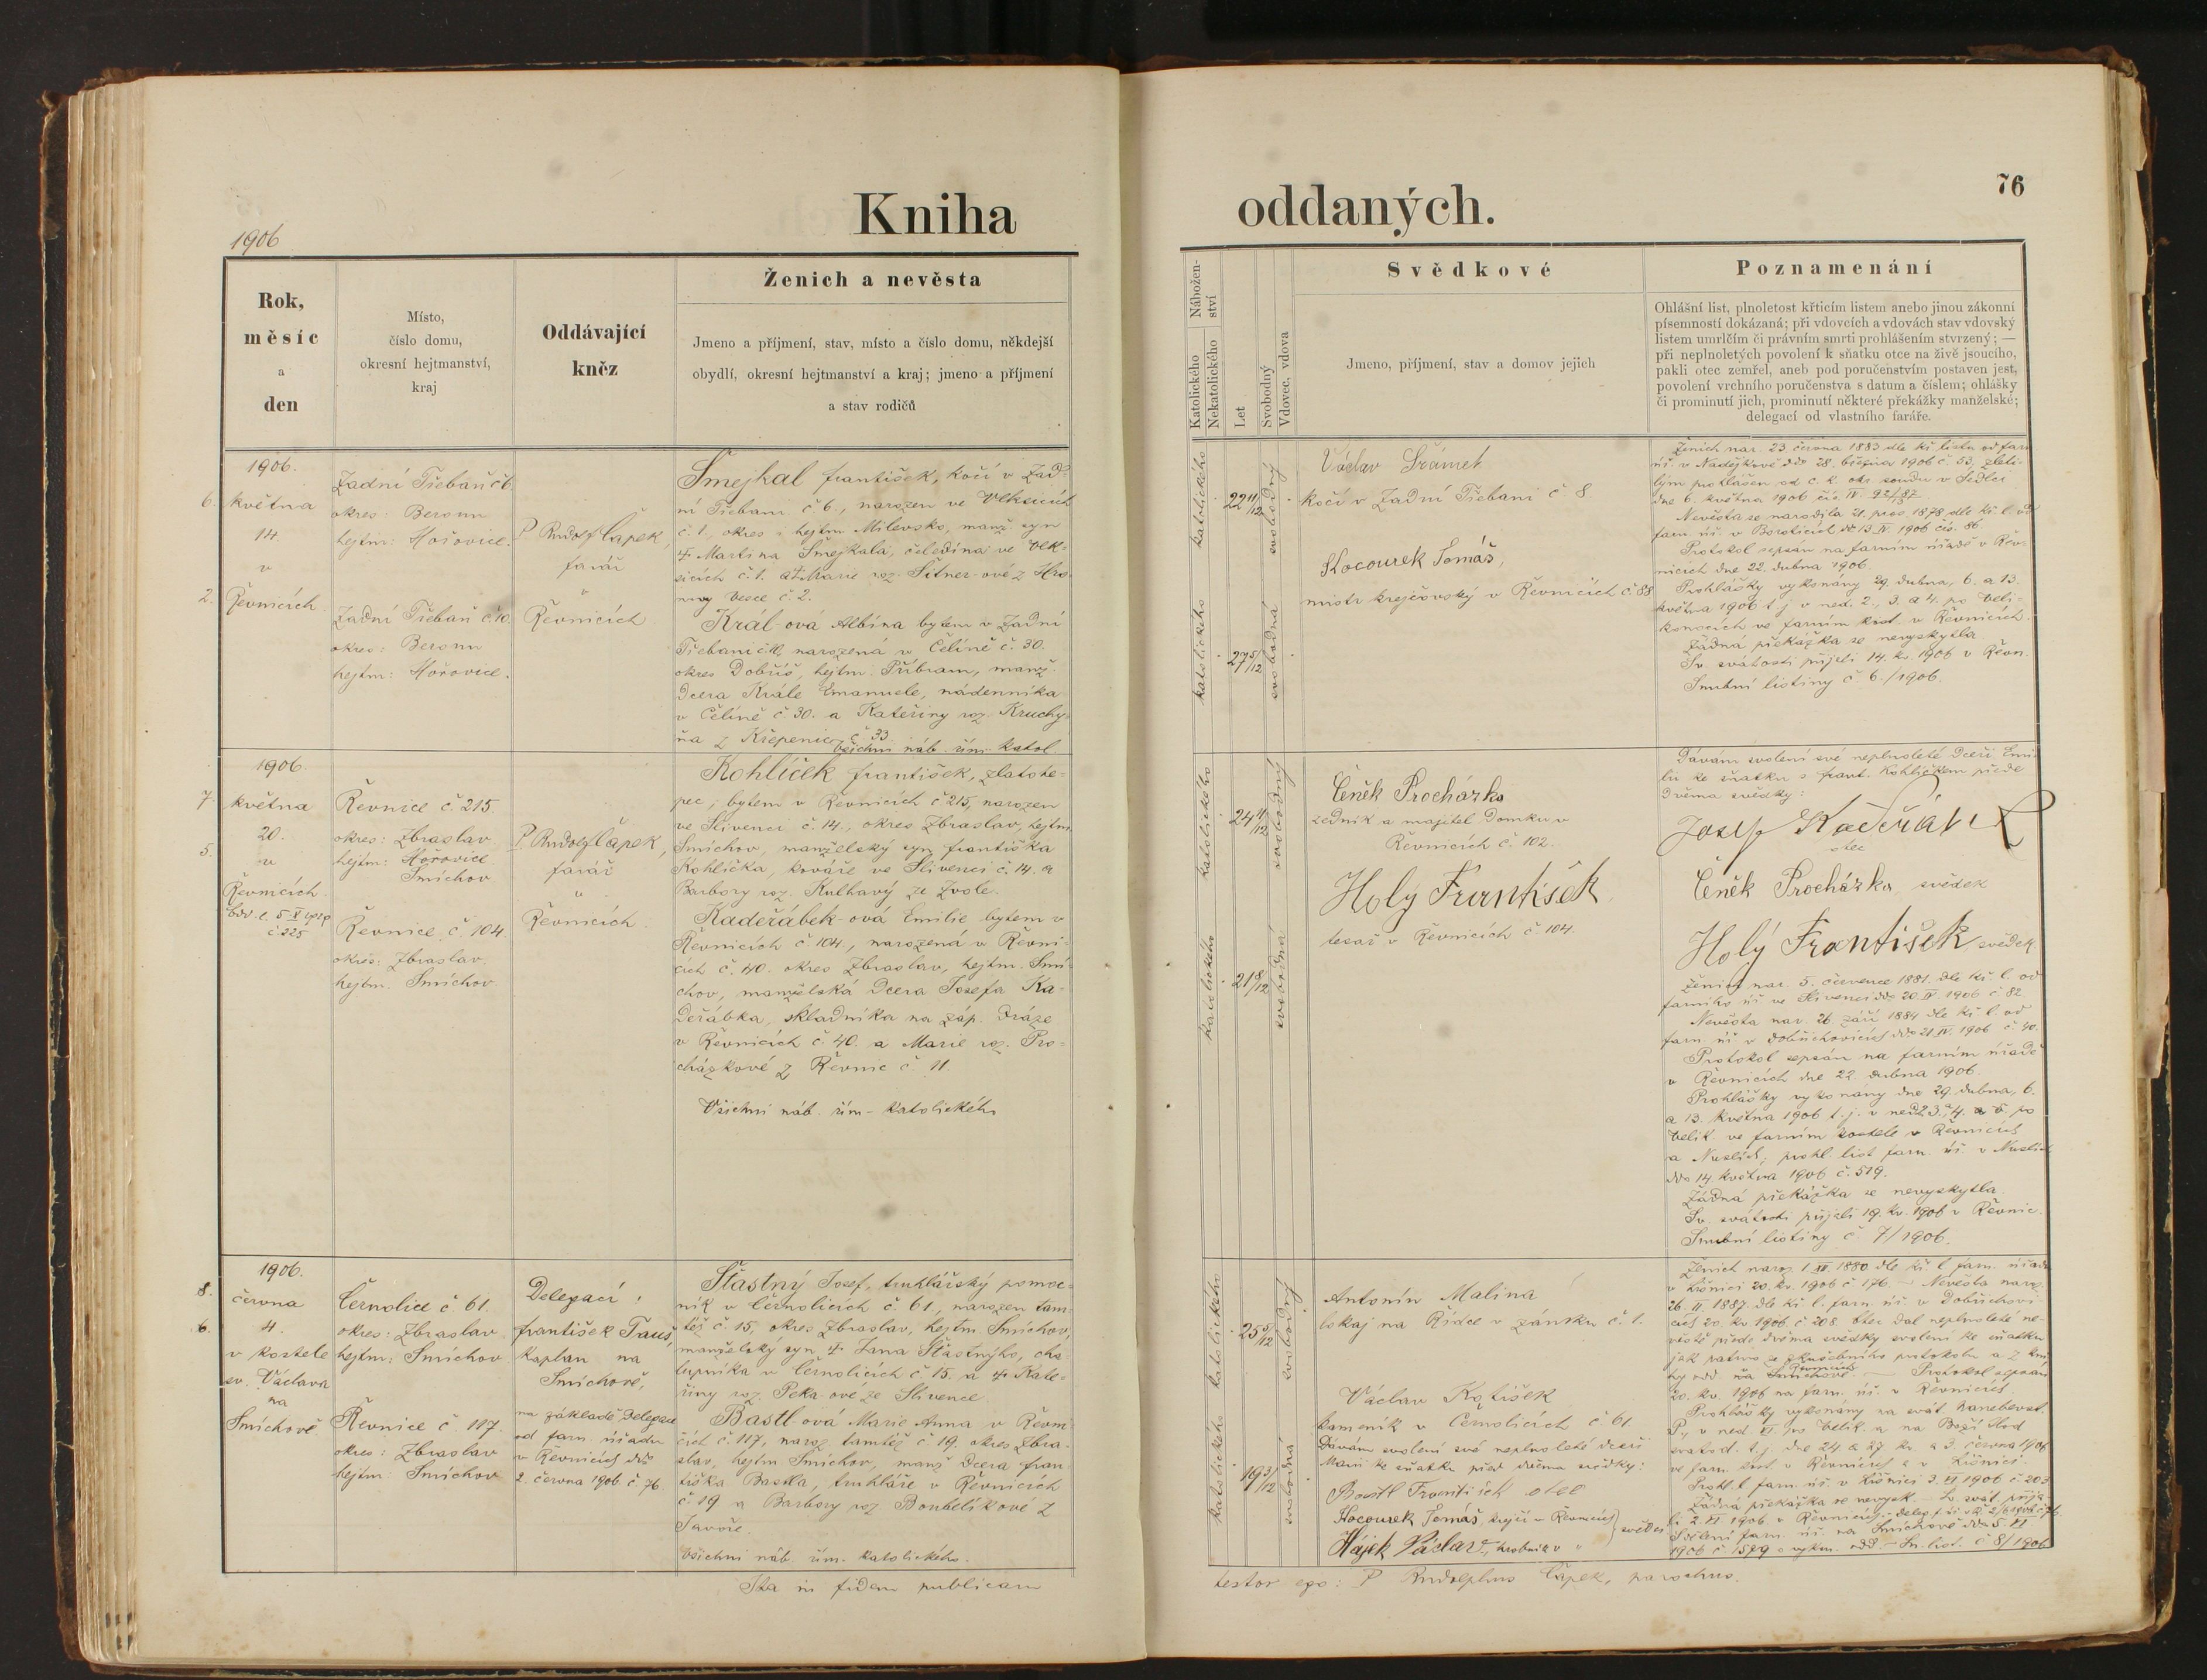 76
Kniha oddaných.
1906
Rok,
měsíc
a
den
Místo,
číslo domu,
okresní hejtmanství,
kraj
Oddávající
kněz
Ženich a nevěsta
Jmeno a příjmení, stav, místo a číslo domu, někdejší
obydlí, okresní hejtmanství a kraj; jmeno a příjmení
a stav rodičů
Nábožen-
ství
Katolického
Nekatolického
Let
Svobodný
Vdovec, vdova
Svědkové
Jmeno, příjmení, stav a domov jejich
Poznamenání
Ohlášní list, plnoletost křticím listem anebo jinou zákonní
písemností dokázaná; při vdovcích a vdovách stav vdovský
listem umrlčím či právním smrti prohlášením stvrzený; —
při neplnoletých povolení k sňatku otce na živě jsoucího,
pakli otec zemřel, aneb pod poručenstvím postaven jest,
povolení vrchního poručenstva s datum a číslem; ohlášky
či prominutí jich, prominutí některé překážky manželské;
delegací od vlastního faráře.
1906.
6. května
14.
v
2. Řevnicích.
Zadní Třebaň č 6
okres: Beroun
hejtm: Hořovice.
Zadní Třebaň č. 10
okres: Beroun
hejtm: Hořovice.
P. Rudolf Čapek,
farář
v
Řevnicích.
Smejkal František, kočí v Zad-
ní Třebani č. 6., narozen ve Vlksicích
č. 1., okres i hejtm. Milevsko, manž. syn
† Martina Smejkala, čeledína ve Vlk-
sicích č. 1. a † Marie roz. Sitner-ové z
č. 2.
Král-ová Albína bytem v Zadní
Třebani č. 10, narozená v Čelíně č. 30.
okres Dobříš, hejtm. Příbram, manž.
dcera Krále Emanuele, nádenníka
v Čelíně č. 30. a Kateřiny roz. Kruchy-
ňa z Křepenic č. 33.
Všichni náb. řím. katol.
katolického
22 11/12
svobodný
katolického
27 5/12
svobodná
Václav Šrámek
kočí v Zadní Třebani č 8
Kocourek Tomáš,
mistr krejčovský v Řevnicích č. 88
Ženich nar. 23. června 1883 dle kř. listu od farn.
úř. v Nadějkově ddo 28. března 1906 č. 53, zleti-
lým prohlášen od c. k. okr. soudu v Sedlci
dne 6. května 1906 čís. IV.
Nevěsta se narodila 21. pros. 1878 dle kř. l. od
farn. úř. v Boroticích dd 13. IV. 1906 čís. 86.
Protokol sepsán na farním úřadě v Řev-
nicích dne 22. dubna 1906.
Prohlášky vykonány 29. dubna, 6. a 13.
května 1906 t. j. v ned. 2., 3. a 4. po Veli-
konocích ve farním kost. v Řevnicích.
Žádná překážka se nevyskytla.
Sv. svátosti přijali 14. kv. 1906 v Řevn.
Snubní listiny č. 6./1906.
1906.
7. května
20.
5. v
Řevnicích.
č. 225
Řevnice č. 215.
okres: Zbraslav
hejtm: Hořovice
Smíchov
Řevnice č. 104.
okres: Zbraslav.
hejtm. Smíchov
P. Rudolf Čapek,
farář
v
Řevnicích.
Kohlíček František, zlatote-
pec, bytem v Řevnicích č 215, narozen
ve Slivenci č. 14., okres Zbraslav, hejtm.
Smíchov, manželský syn Františka
Kohlíčka, kováře ve Slivenci č. 14. a
Barbory roz. Kulhavý ze Zvole.
Kadeřábek-ová Emilie bytem v
Řevnicích č 104., narozená v Řevni-
cích č. 40. okres Zbraslav, hejtm. Smí-
chov, manželská dcera Josefa Ka-
deřábka, skladníka na záp. dráze
v Řevnicích č. 40. a Marie roz. Pro-
cházkové z Řevnic č. 11.
Všichni náb. řím-katolického
katolického
24
svobodný
katolického
21 8/12
svobodná
Čeněk Procházka
zedník a majitel domku v
Řevnicích č. 102.
Holý František
tesař v Řevnicích č. 104.
Dávám svolení své neplnoleté dceři Emi-
lii ke sňatku s Frant. Kohlíčkem přede
dvěma svědky:
Josef Kadeřábek
otec
Čeněk Procházka svědek
Holý František svědek
Ženich nar. 5. července 1881. dle kř. l. od
farního úř. ve Slivenci ddo 20. IV. 1906 č 82.
Nevěsta nar. 26. září 1884 dle kř. l. od
farn. úř. v Dobřichovicích ddo 21. IV. 1906 č. 40.
Protokol sepsán na farním úřadě
v Řevnicích dne 22. dubna 1906.
Prohlášky vykonány dne 29. dubna, 6.
a 13. května 1906 t. j. v ned. 2. 3., 4. po
Velik. ve farním kostele v Řevnicích
a Nuslích; prohl. list farn. úř. v Nuslích
ddo 14. května 1906 č. 519.
Žádná překážka se nevyskytla.
Sv. svátosti přijali 19. kv. 1906 v Řevnic.
Snubní listiny č. 7/1906.
1906.
8. června
6. 4.
v kostele
sv. Václava
na
Smíchově
Černolice č. 61.
okres: Zbraslav
hejtm: Smíchov
Řevnice č. 117.
okres: Zbraslav
hejtm: Smíchov
Delegací:
František Tauš,
kaplan na
Smíchově,
na základě delegace
od farn. úřadu
v Řevnicích ddo
2. června 1906 č. 76.
Šťastný Josef, truhlářský pomoc-
ník v Černolicích č. 61., narozen tam-
též č. 15, okres Zbraslav, hejtm. Smíchov,
manželský syn † Jana Šťastnýho, cha-
lupníka v Černolicích č. 15. a † Kate-
řiny roz. Peka-ové ze Slivence.
Bastl-ová Marie Anna v Řevni-
cích č. 117, naroz. tamtéž č. 19. okres Zbra-
slav, hejtm Smíchov, manž. dcera Fran-
tiška Bastla, truhláře v Řevnicích
č. 19 a Barbory roz. Boubelíkové z
Javoře.
Všichni náb. řím. katolického.
katolického
25 5/12
svobodný
katolického
19 3/12
svobodná
Antonín Malina
lokaj na Řídce v zámku č. 1.
Václav Kotíšek
kameník v Černolicích č 61
Dávám svolení své neplnoleté dceři
Marii ke sňatku před dvěma svědky:
Bastl František otec
Kocourek Tomáš, krejčí v Řevnicích } svědci
Hájek Václav, hrobník v "
Ženich naroz. 1. XII. 1880 dle kř. l. farn. úřadu
v Líšnici 20. kv. 1906 č 176 — Nevěsta naroz.
26. II. 1887. dle kř. l. farn. úř. v Dobřichovi-
cích 20. kv 1906. č 208. Otec dal neplnoleté ne-
věstě přede dvěma svědky svolení ke sňatku
jak patrno ze zkušebního protokolu a z kni-
hy odd. na Smíchově. Řevnicích — Protokol sepsán
20. kv. 1906 na farn. úř. v Řevnicích.
Prohlášky vykonány na svát. Nanebevst.
P., v ned. VI. po Velik. a na Boží Hod
svatod. t. j. dne 24. a 27. kv. a 3. června 1906
ve farn. kost. v Řevnicích a v Líšnici.
Prohl. l. farn. úř. v Líšnici 3. VI 1906 č. 203
Žádná překážka se nevysk. — Sv. svát. přija-
li 2. VI. 1906 v Řevnicích.
Sdělení farn. úř. na Smíchově ddo 5. VI
1906 č. 1579 o vykon. odd. — Sn. list. č 8/1906
Ita in fidem publicam
testor ego: P. Rudolphus Čapek, parochus.